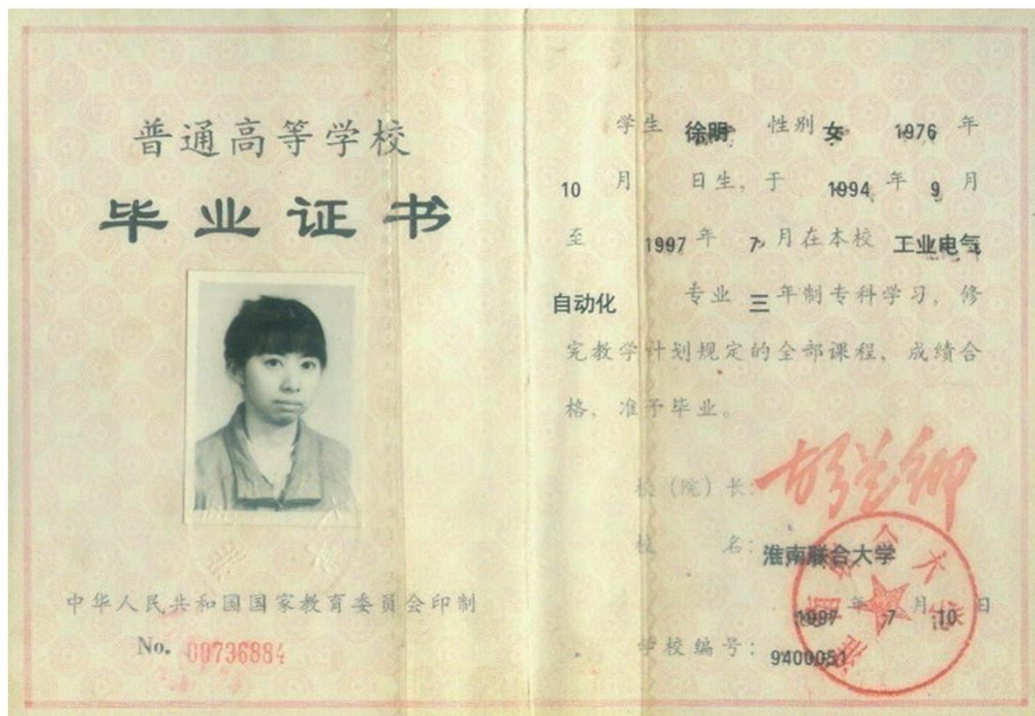 普通高等学校
毕业证书
中华人民共和国国家教育委员会印制
No. 00736884
学生 徐明 性别 女 1976 年
10 月 日生, 于 1994 年 9 月
至 1997 年 7 月在本校 工业电气
自动化 专业 三 年制专科学习, 修
完教学计划规定的全部课程, 成绩合
格, 准予毕业。
校 (院) 长:
校 名: 淮南联合大学
1997 年 7 月 10 日
学校编号: 9400051